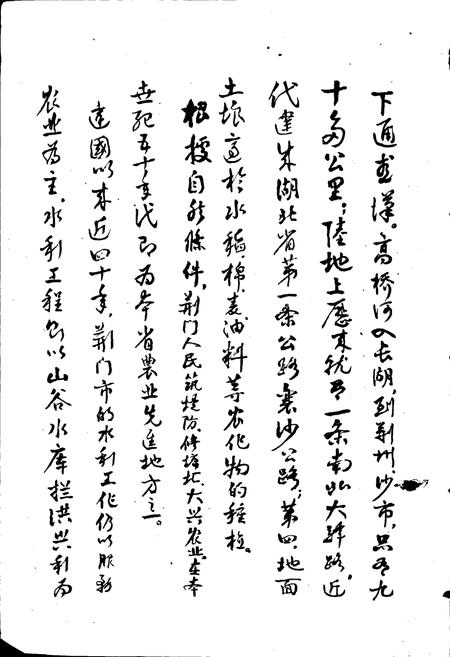 下通武漢。高桥河入长湖,到荆州、沙市,只有九
十多公里;陸地上歷来就有一条南北大驿路。近
代建成湖北省第一条公路襄沙公路;第四,地面
土壤宜於水稻、棉、麦、油料等农作物的種植。
根據自然條件,荆门人民筑堤防、修塘北、大兴农业、在本
世纪五十年代即为本省農业先進地方之一。
建國以来近四十年,荆门市的水利工作仍以服務
农业为主。水利工程則以山谷水庫拦洪兴利为